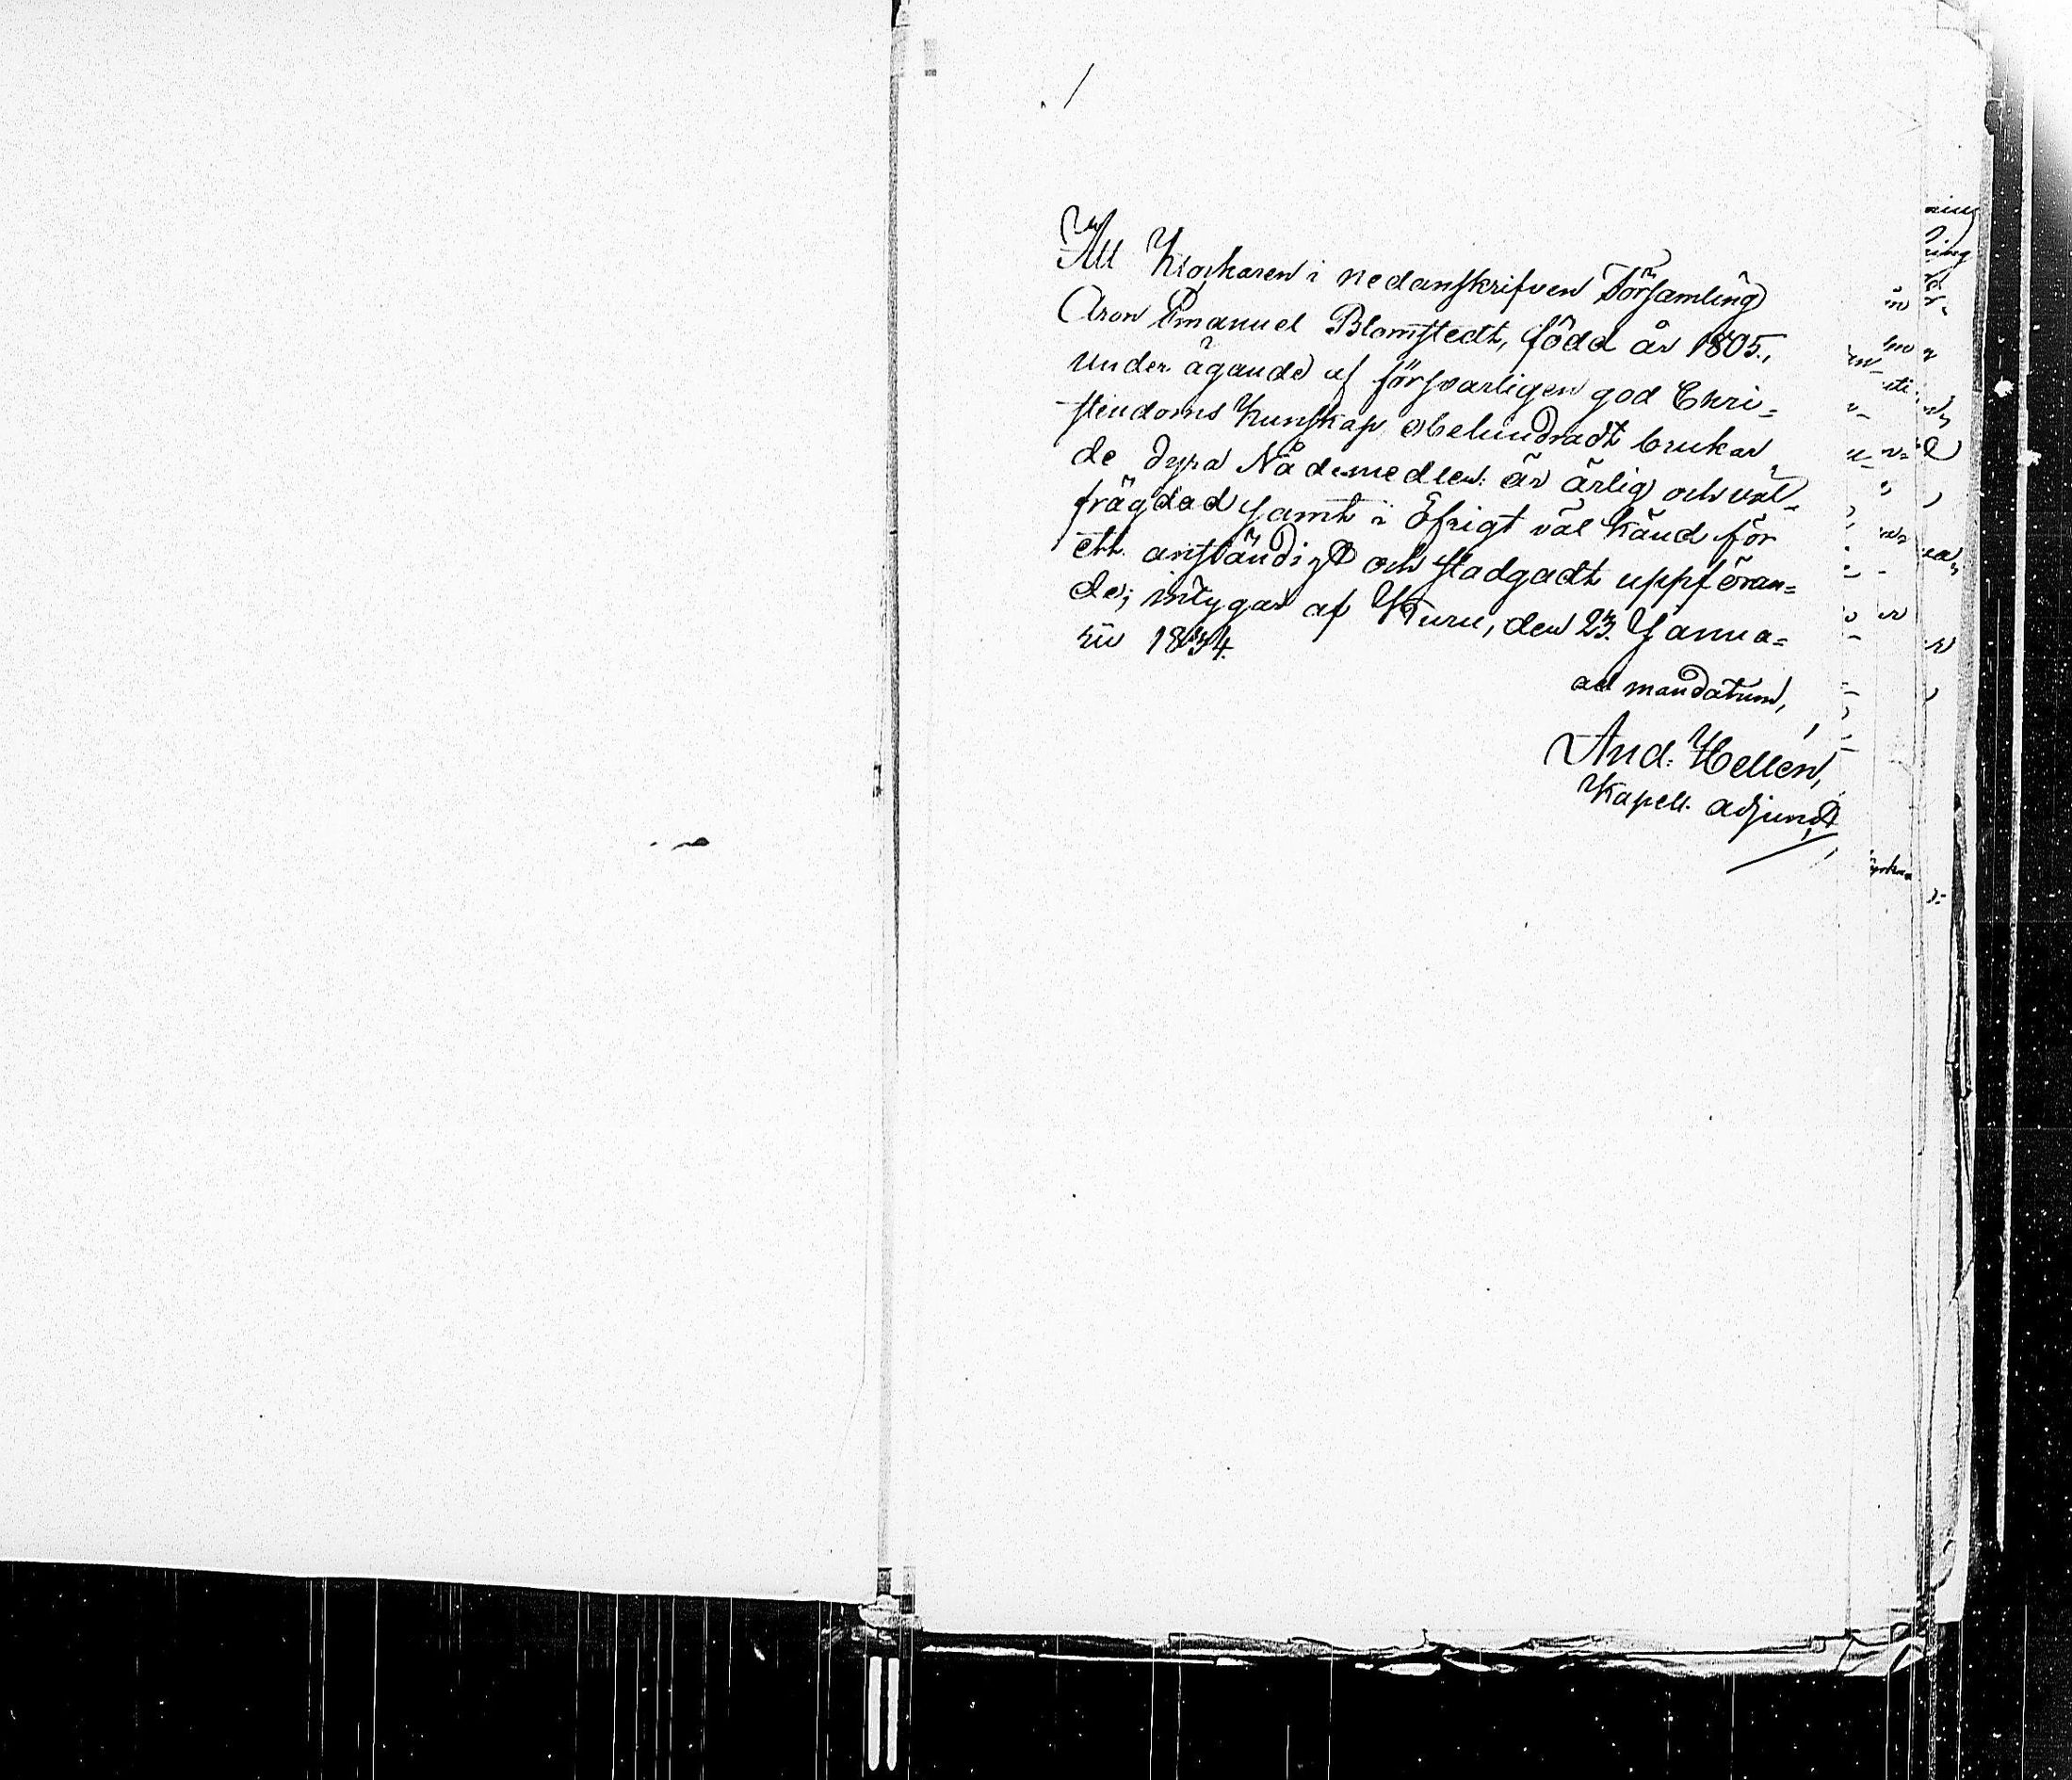 Att Klockaren i nedanskrifven Församling
Aron Emanuel Blomstedt, född år 1805,
under ägande af försvarligen god Chri-
stendoms kunskap obehindradt brukar
de dyra Nådemedlen: är ärlig och väl
frägdad samt i Öfrigt väl känd för
ett anständigt och stadgadt uppföran-
de; intygar af Kuru, den 23 Janua-
rii 1834.
ad mandatum,
And: Hellén,
Kapell. adjunct